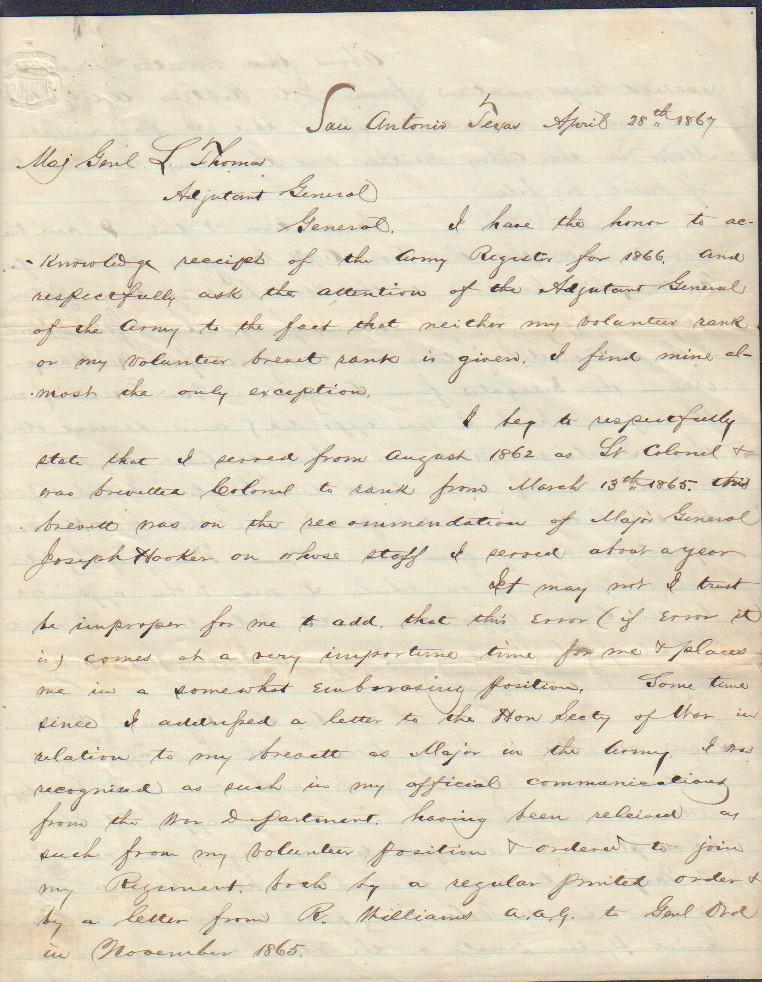 San Antonio Texas April 28th 1867
Maj Genl L Thomas
Adjutant General
General. I have the honor to ac-
-knowledge receipt of the Army Register for 1866. and
respectfully ask the attention of the Adjutant General
of the Army to the fact that neither my volunteer rank
or my volunteer brevet rank is given. I find mine al-
-most the only exception.
I beg to respectfully
state that I served from August 1862 as Lt Colonel &
was brevetted Colonel to rank from March 13th 1865. this
brevett was on the recommendation of Major General
Joseph Hooker on whose staff I served about a year
It may not I trust
be improper for me to add. that this Error (if Error it
is) comes at a very importune time for me & places
me in a somewhat Embarasing position. Some time
since I addressed a letter to the Hon Secty of War in
relation to my brevett as Major in the Army. I was
recognised as such in my official communications
from the War Department. having been relieved as
such from my volunteer position & ordered to join
my Regiment. both by a regular printed order &
by a letter from R. Williams A.A.G. to Genl Ord
in November 1865.